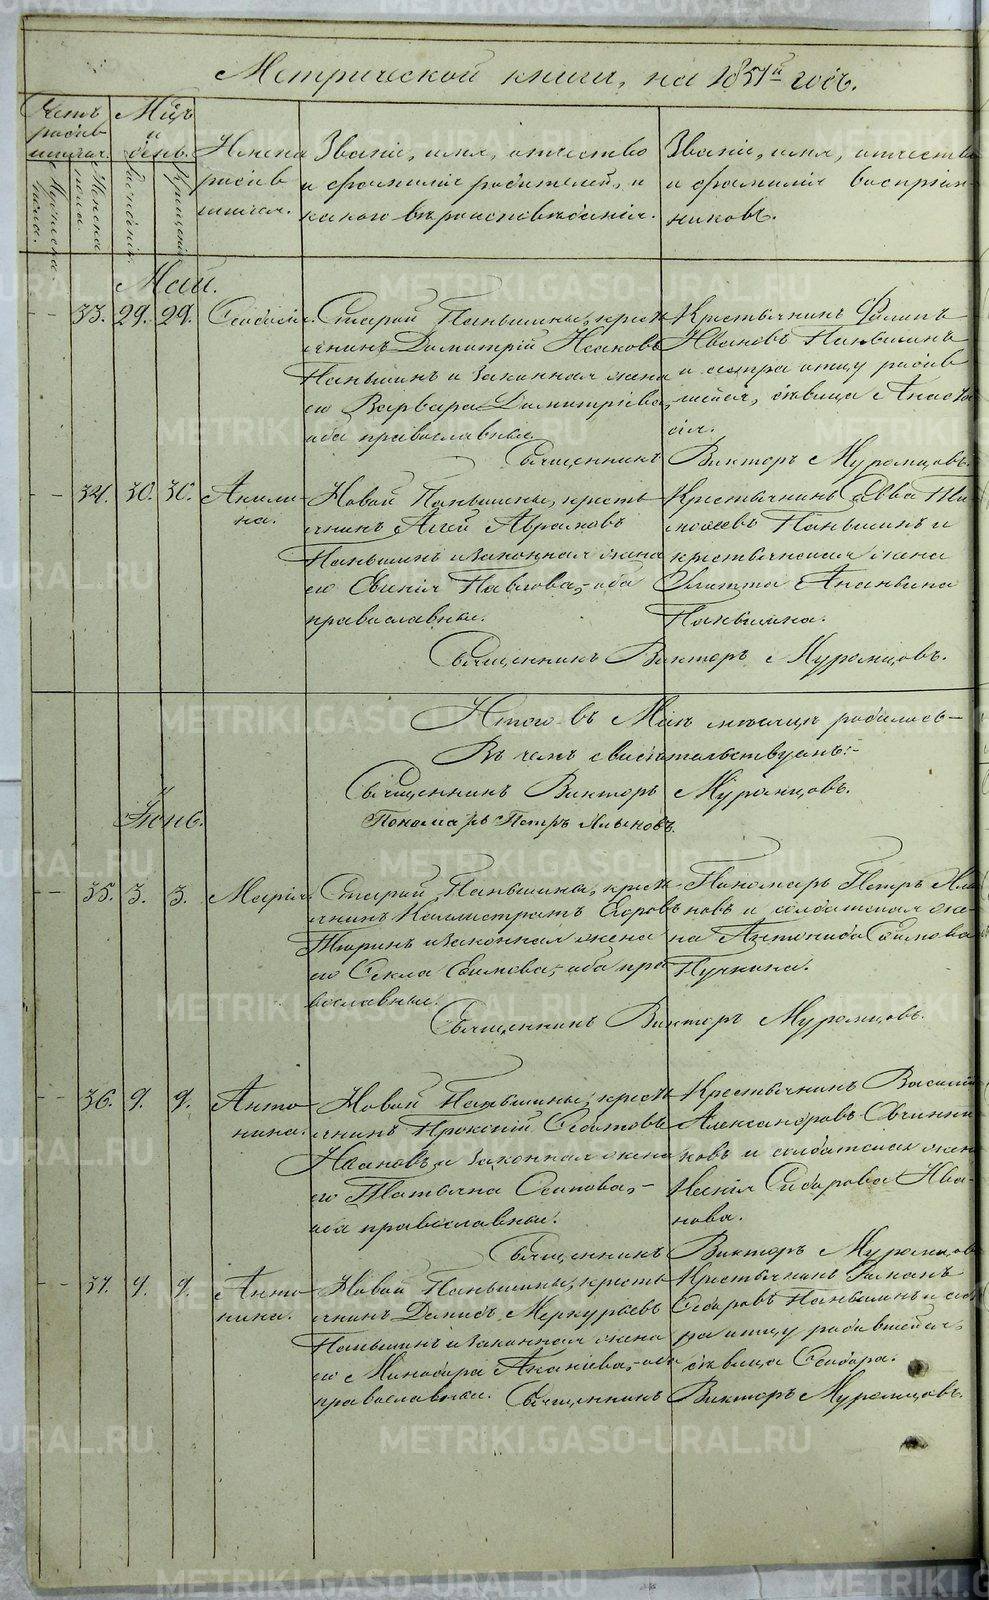 Метрической книги, на 1851й годъ.
Счетъ родив шихся.
Мужеска пола.
Женска пола.
Мцъ и день.
рожденія.
крещенія.
Имена родив шихся.
Званіе, имя, отчество
и фамилія родителей, и
какого вѣроисповѣданія.
Званіе, имя, отчество
и фамилія воспріем-
никовъ.
Май.
33. 29. 29. Ѳеодосія.
Старой Паньшины, кресть
янинъ Димитрій Исаковъ
Паньшинъ и законная жена
его Варвара Димитріева,
оба православные.
Крестьянинъ Филипъ
Ивановъ Паньшинъ
и сестра отцу родив
шейся, дѣвица Анаста
сія.
Священникъ Викторъ Муромцовъ.
34. 30. 30. Акили-
на.
Новой Паньшины, кресть
янинъ Авраамовъ
Паньшинъ и законная жена
его Евгенія Павлова,- оба
православные.
Крестьянинъ Савва Ти
моѳеевъ Паньшинъ и
крестьянская жена
Ананьина
Паньшина.
Священникъ Викторъ Муромцовъ.
Итого въ Маѣ мѣсяцѣ родилось-
Въ чемъ свидѣтельствуемъ:-
Священникъ Викторъ Муромцовъ.
Пономарь Петръ
Іюнь.
35. 3. 3. Марія.
Старой Паньшины, кресть-
янинъ Калистратъ Егоровъ
Тюринъ и законная жена
его Ѳекла Ефимова,- оба пра
вославные.
Пономарь Петръ
новъ и солдатская же-
на Антонида Ефимова
Пучкина.
Священникъ Викторъ Муромцовъ.
36. 9. 9. Анто
нина.
Новой Паньшины, кресть
янинъ Прокопій
Ивановъ и законная жена
его Татьяна Осипова,-
оба православные.
Крестьянинъ Василій
Александровъ Овчинни
ковъ и солдатская жена
Ксенія Сидорова Ива-
нова.
Священникъ Викторъ Муромцовъ
37. 9. 9. Анто
нина.
Новой Паньшины, кресть
янинъ Данилъ Меркурьевъ
Паньшинъ и законная жена
его Минодора Ананіева,-оба
православные.
Крестьянинъ Романъ
Ѳедоровъ Паньшинъ и сест
ра отцу родившейся,
дѣвица Ѳеодора.
Священникъ Викторъ Муромцовъ.
METRIKI.GASO-URAL.RU